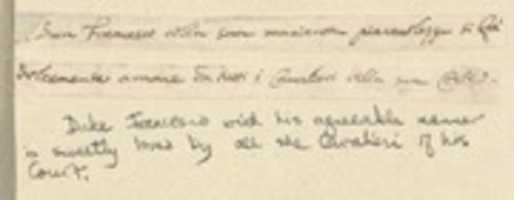 Francesco colla sua
dolcemente amare da tutti i Cavalieri della sua Corte.
Duke Francesco with his agreeable manner
is sweetly loved by all the Cavalieri of his
Court.